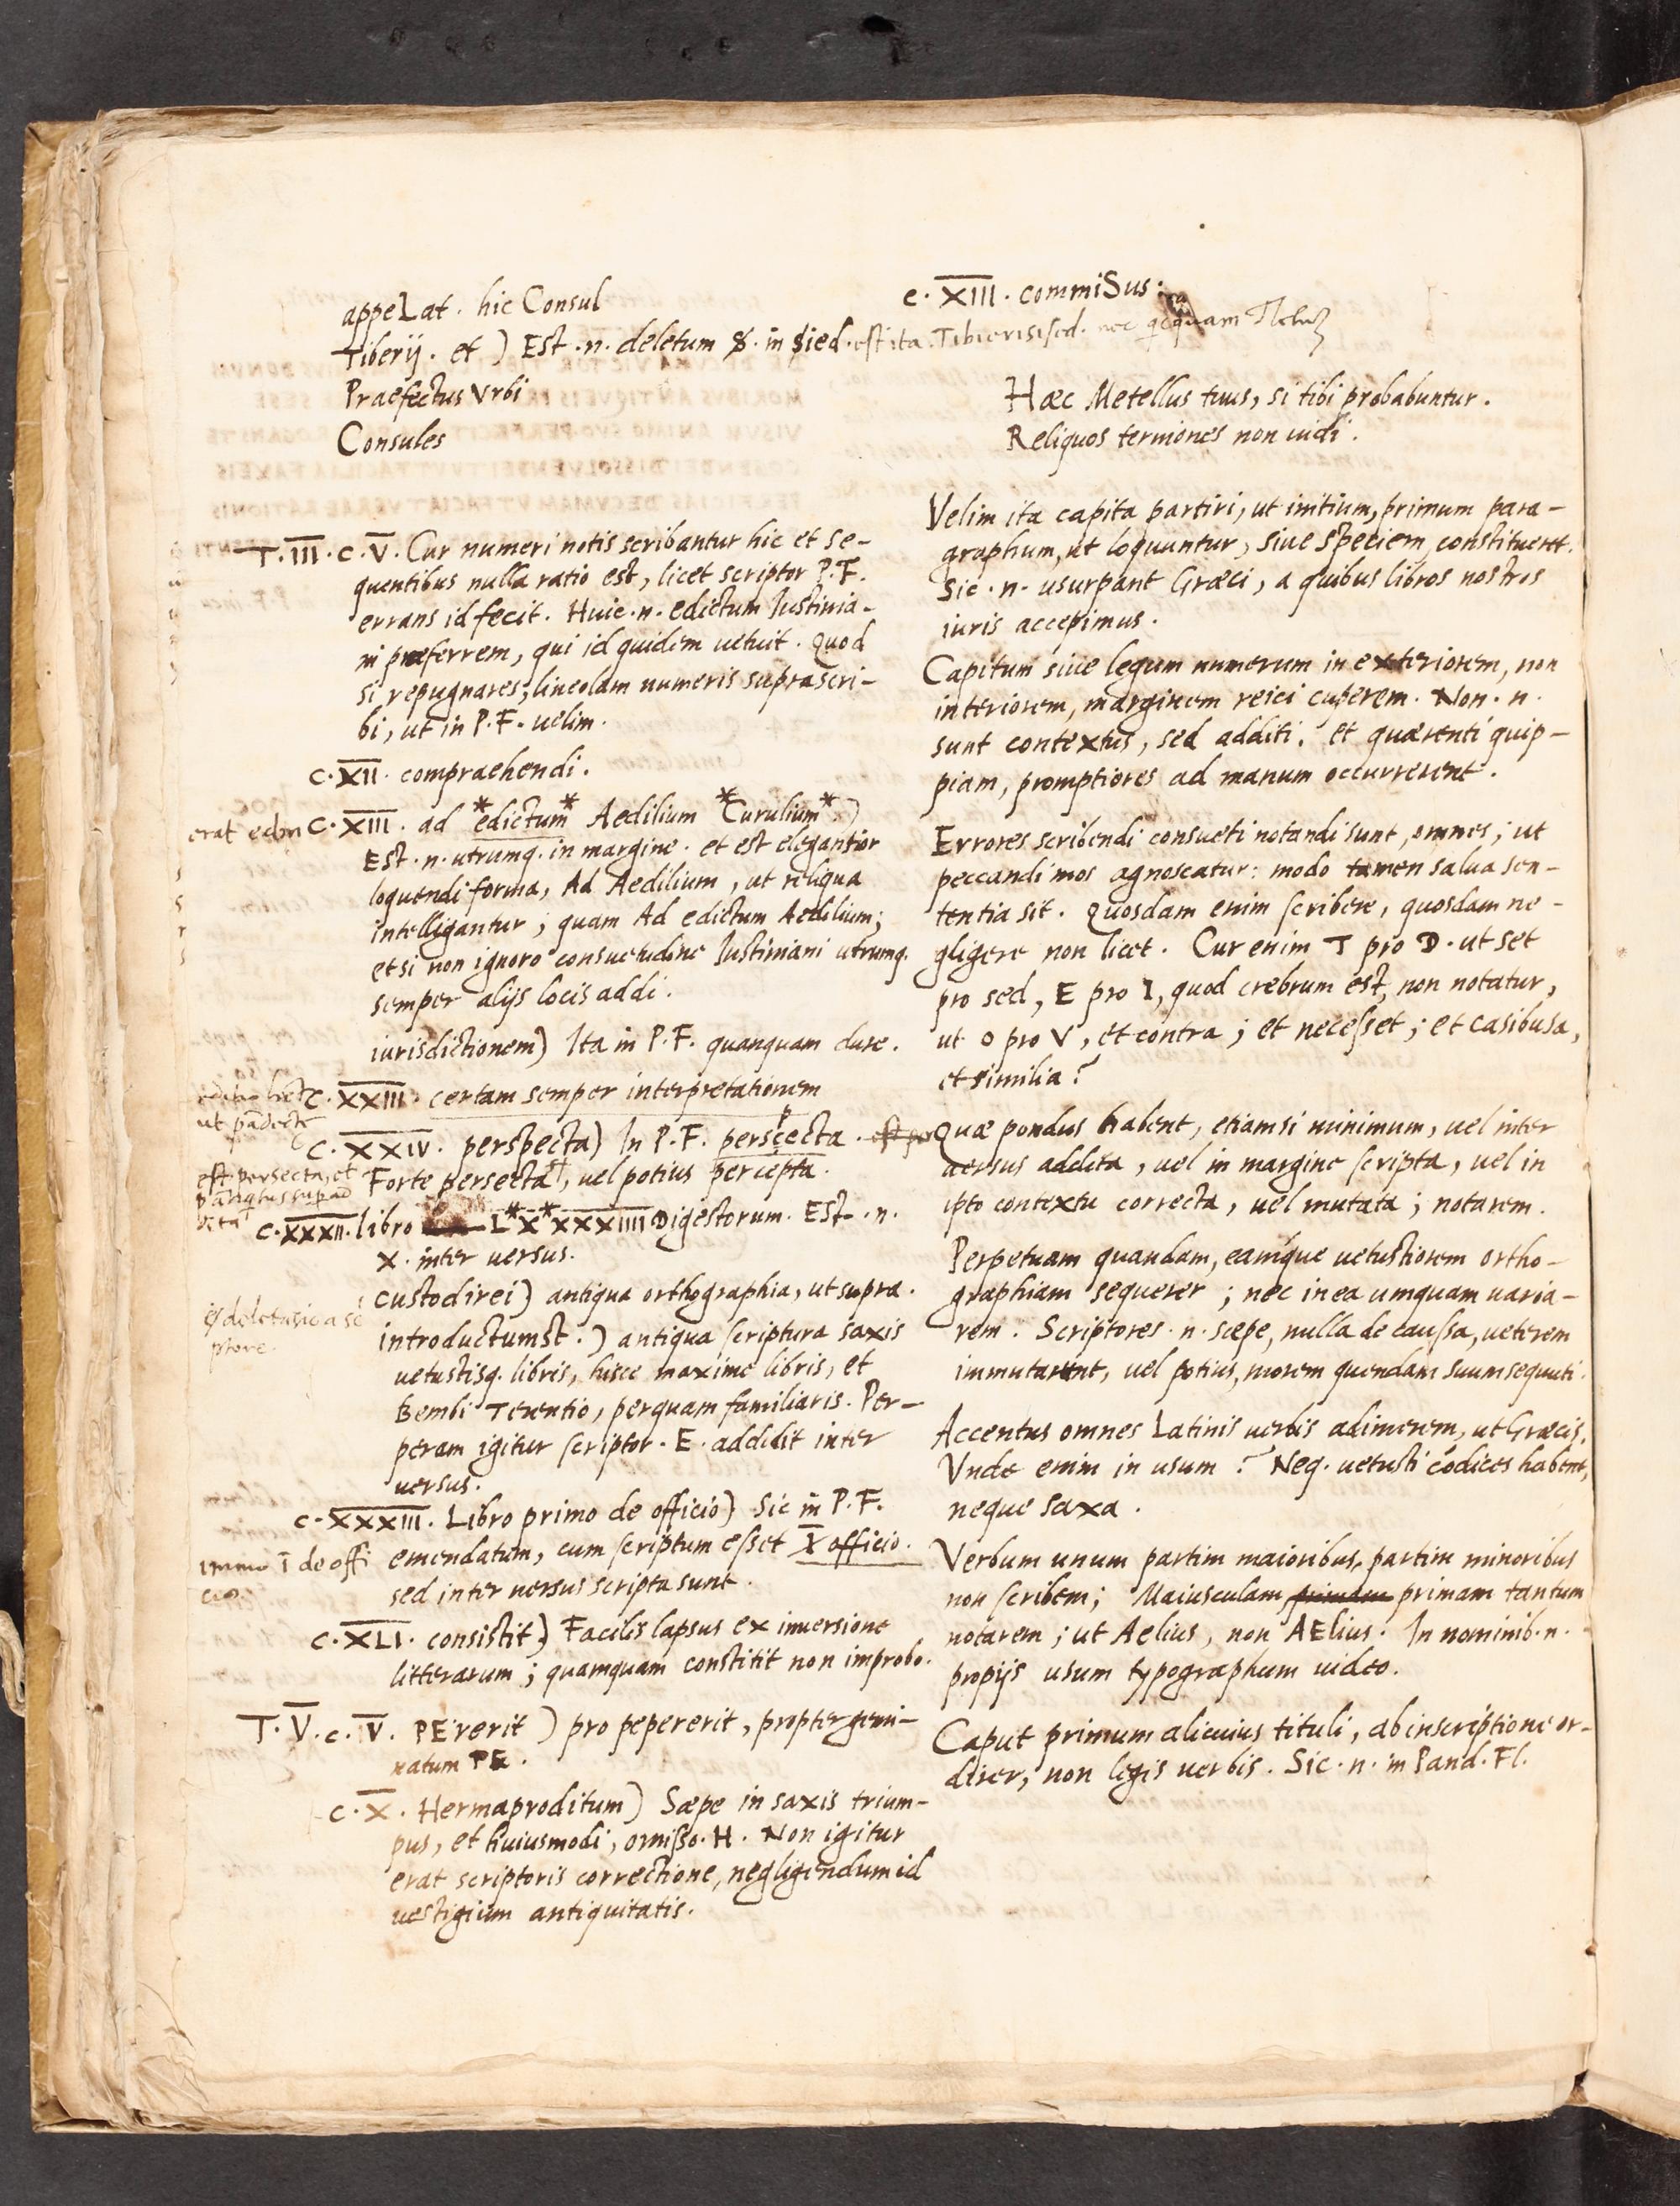 appeLat . hic Consul
Tiberij . et ) Est .n. deletum S . in Sied . est ita . Tibierisised . nec
Praefectus Vrbi
Consules
T. III. C. V. Cur numeri notis scribantur hic et se-
quentibus nulla ratio est, licet scriptor P.F.
errans id fecit. Huic .n. edictum Iustinia-
ni præferrem, qui id quidem uetuit. Quod
si repugnares; lineolam numeris suprascri-
bi, ut in P.F. uelim.
C. XII. compraehendi.
erat
C. XIII. ad *edictum* Aedilium *Curulium*)
Est .n. utrumq. in margine. et est elegantior
loquendi forma, Ad Aedilium, ut reliqua
intelligantur; quam Ad edictum Aedilium;
etsi non ignoro consuetudine Iustiniani utrumq.
semper alijs locis addi.
iurisdictionem) Ita in P.F. quanquam dure.
C. XXIII. certam semper interpretationem
ut
C. XXIV. perspecta) In P.F. persçecta.
est persecta, et
Forte persecta, uel potius percepta.
C. XXXII. libro L*X*XXXIIII Digestorum. Est .n.
X. inter uersus.
custodirei) antiqua orthographia, ut supra.
introductumst.) antiqua scriptura saxis
uetustisq. libris, hisce maxime libris, et
Bembi Terentio, perquam familiaris. Per-
peram igitur scriptor. E. addidit inter
uersus.
C. XXXIII. Libro primo de officio) Sic in P.F.
immo I de offi
cio.
emendatum, cum scriptum esset I officio.
sed inter uersus scripta sunt.
C. XLI. consistit) Facilis lapsus ex inuersione
litterarum; quamquam constitit non improbo.
T. V. C. V. PE'rerit ) pro pepererit, propter gemi-
natum PE.
C. X. Hermaproditum) Sæpe in saxis trium-
pus, et huiusmodi, omisso. H. Non igitur
erat scriptoris correctione, negligendum id
uestigium antiquitatis.
C. XIII. commiSus:
Hæc Metellus tuus, si tibi probabuntur.
Reliquos terniones non uidi.
Velim ita capita partiri, ut initium, primum para-
graphum, ut loquuntur, siue speciem, constitueret.
Sic .n. usurpant Græci, a quibus libros nostros
iuris accepimus.
Capitum siue legum numerum in exteriorem, non
interiorem, marginem reici cuperem. Non .n.
sunt contextus, sed additi. et quærenti quip-
piam, promptiores ad manum occurrerent.
Errores scribendi consueti notandi sunt, omnes; ut
peccandi mos agnoscatur: modo tamen salua sen-
tentia sit. Quosdam enim scribere, quosdam ne-
gligere non licet. Cur enim T pro D. ut set
pro sed, E pro I, quod crebrum est, non notatur,
ut O pro V, et contra; et necesset; et casibusa,
et similia?
Quæ pondus habent, etiamsi minimum, uel inter
uersus addita, uel in margine scripta, uel in
ipso contextu correcta, uel mutata; notarem.
Perpetuam quandam, eamque uetustiorem ortho-
graphiam sequerer; nec in ea umquam uaria-
rem. Scriptores .n. sæpe, nulla de caussa, ueterem
immutarunt, uel potius, morem quendam suum sequuti.
Accentus omnes Latinis uerbis adimerem, ut Græcis.
Vnde enim in usum? Neq. uetusti codices habent,
neque saxa.
Verbum unum partim maioribus, partim minoribus
non scribem; Maiusculam primam tantum
notarem; ut Aelius, non AElius. In nominib. n.
propijs usum typographum uideo.
Caput primum alicuius tituli, ab inscriptione or-
direr, non legis uerbis. Sic .n. in Pand. Fl.